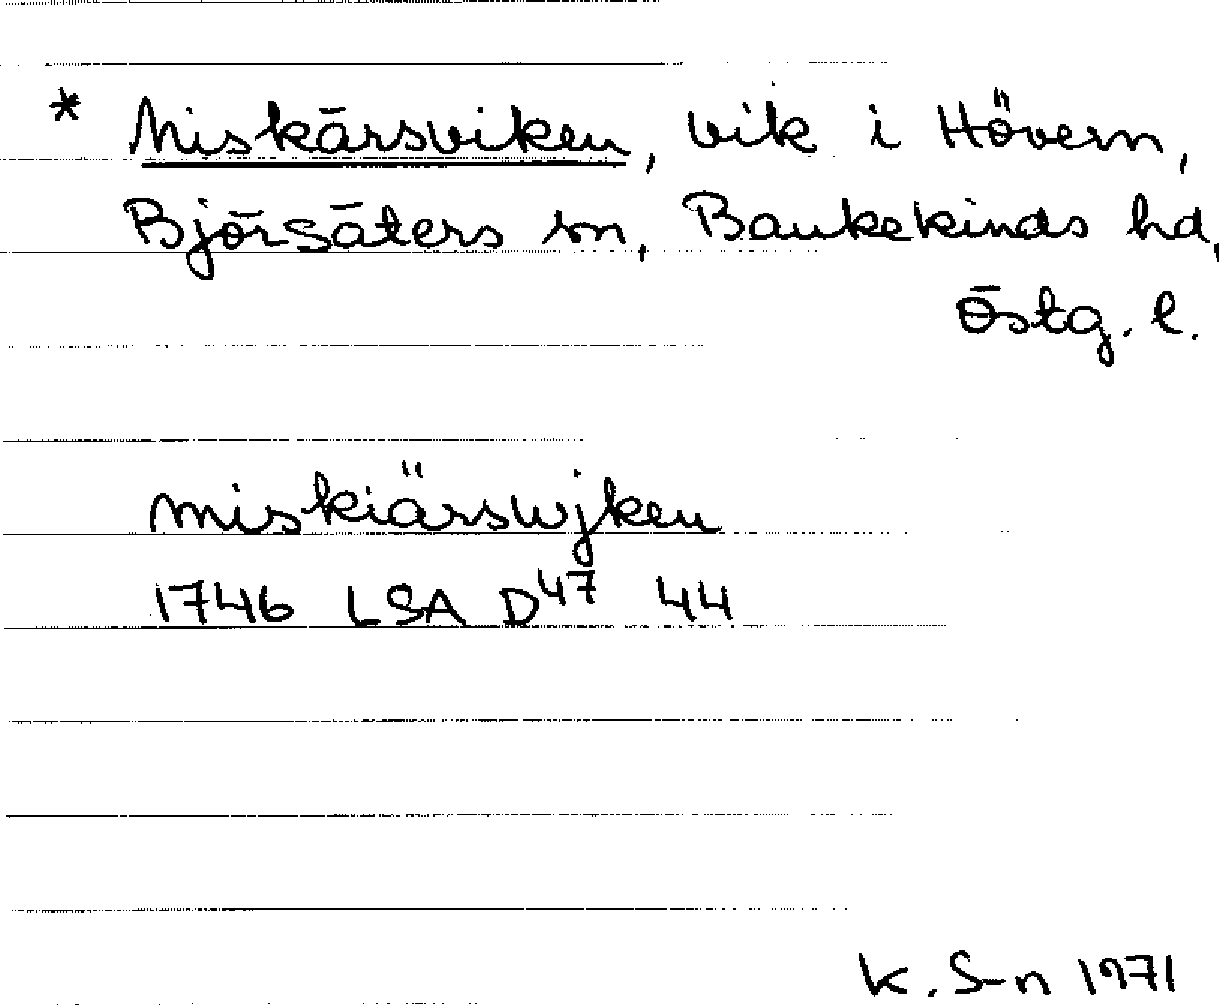 * Miskärsviken, vik i Hövern,
Björsäters sn, Bankekinds hd,
Östg. l.
miskiärswjken
1746 LSA D47 44
K. S-n 1971